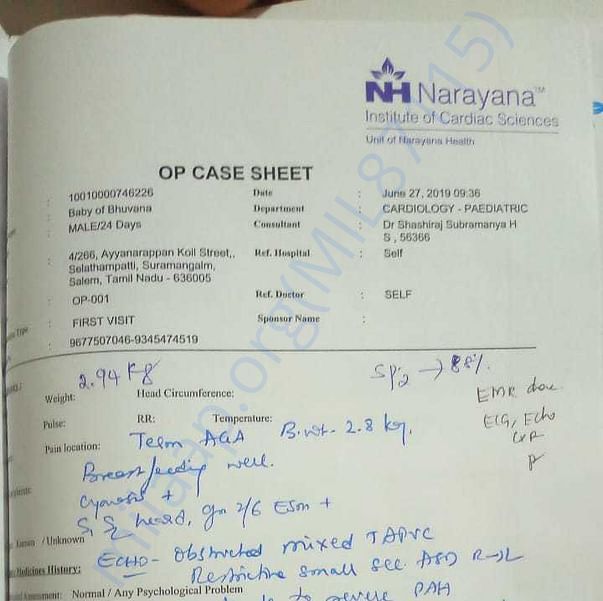 NH Narayana™
Institute of Cardiac Sciences
Unit of Narayana Health
OP CASE SHEET
: 10010000746226 Date : June 27, 2019 09:36
: Baby of Bhuvana Department : CARDIOLOGY - PAEDIATRIC
: MALE/24 Days Consultant : Dr Shashiraj Subramanya H
S , 56366
: 4/266, Ayyanarappan Koil Street,, Ref. Hospital : Self
Selathampatti, Suramangalm,
Salem, Tamil Nadu - 636005
: OP-001 Ref. Doctor : SELF
: FIRST VISIT Sponsor Name :
: 9677507046-9345474519
2.94 Kg SpO2 → 88%
Weight: Head Circumference: EMR done
Pulse: RR: Temperature: ECG, Echo
CXR
Pain location: Term AGA B.wt- 2.8 kg.
Breast feeding well.
Cyanosis +
S1 S2 heard, gr 2/6 ESM +
/Unknown
ECHO- Obstructed mixed TAPVC
Medicines History: Restrictive small sec. ASD R→L
Assessment: Normal / Any Psychological Problem
to severe PAH
milaap.org(MIL87115)